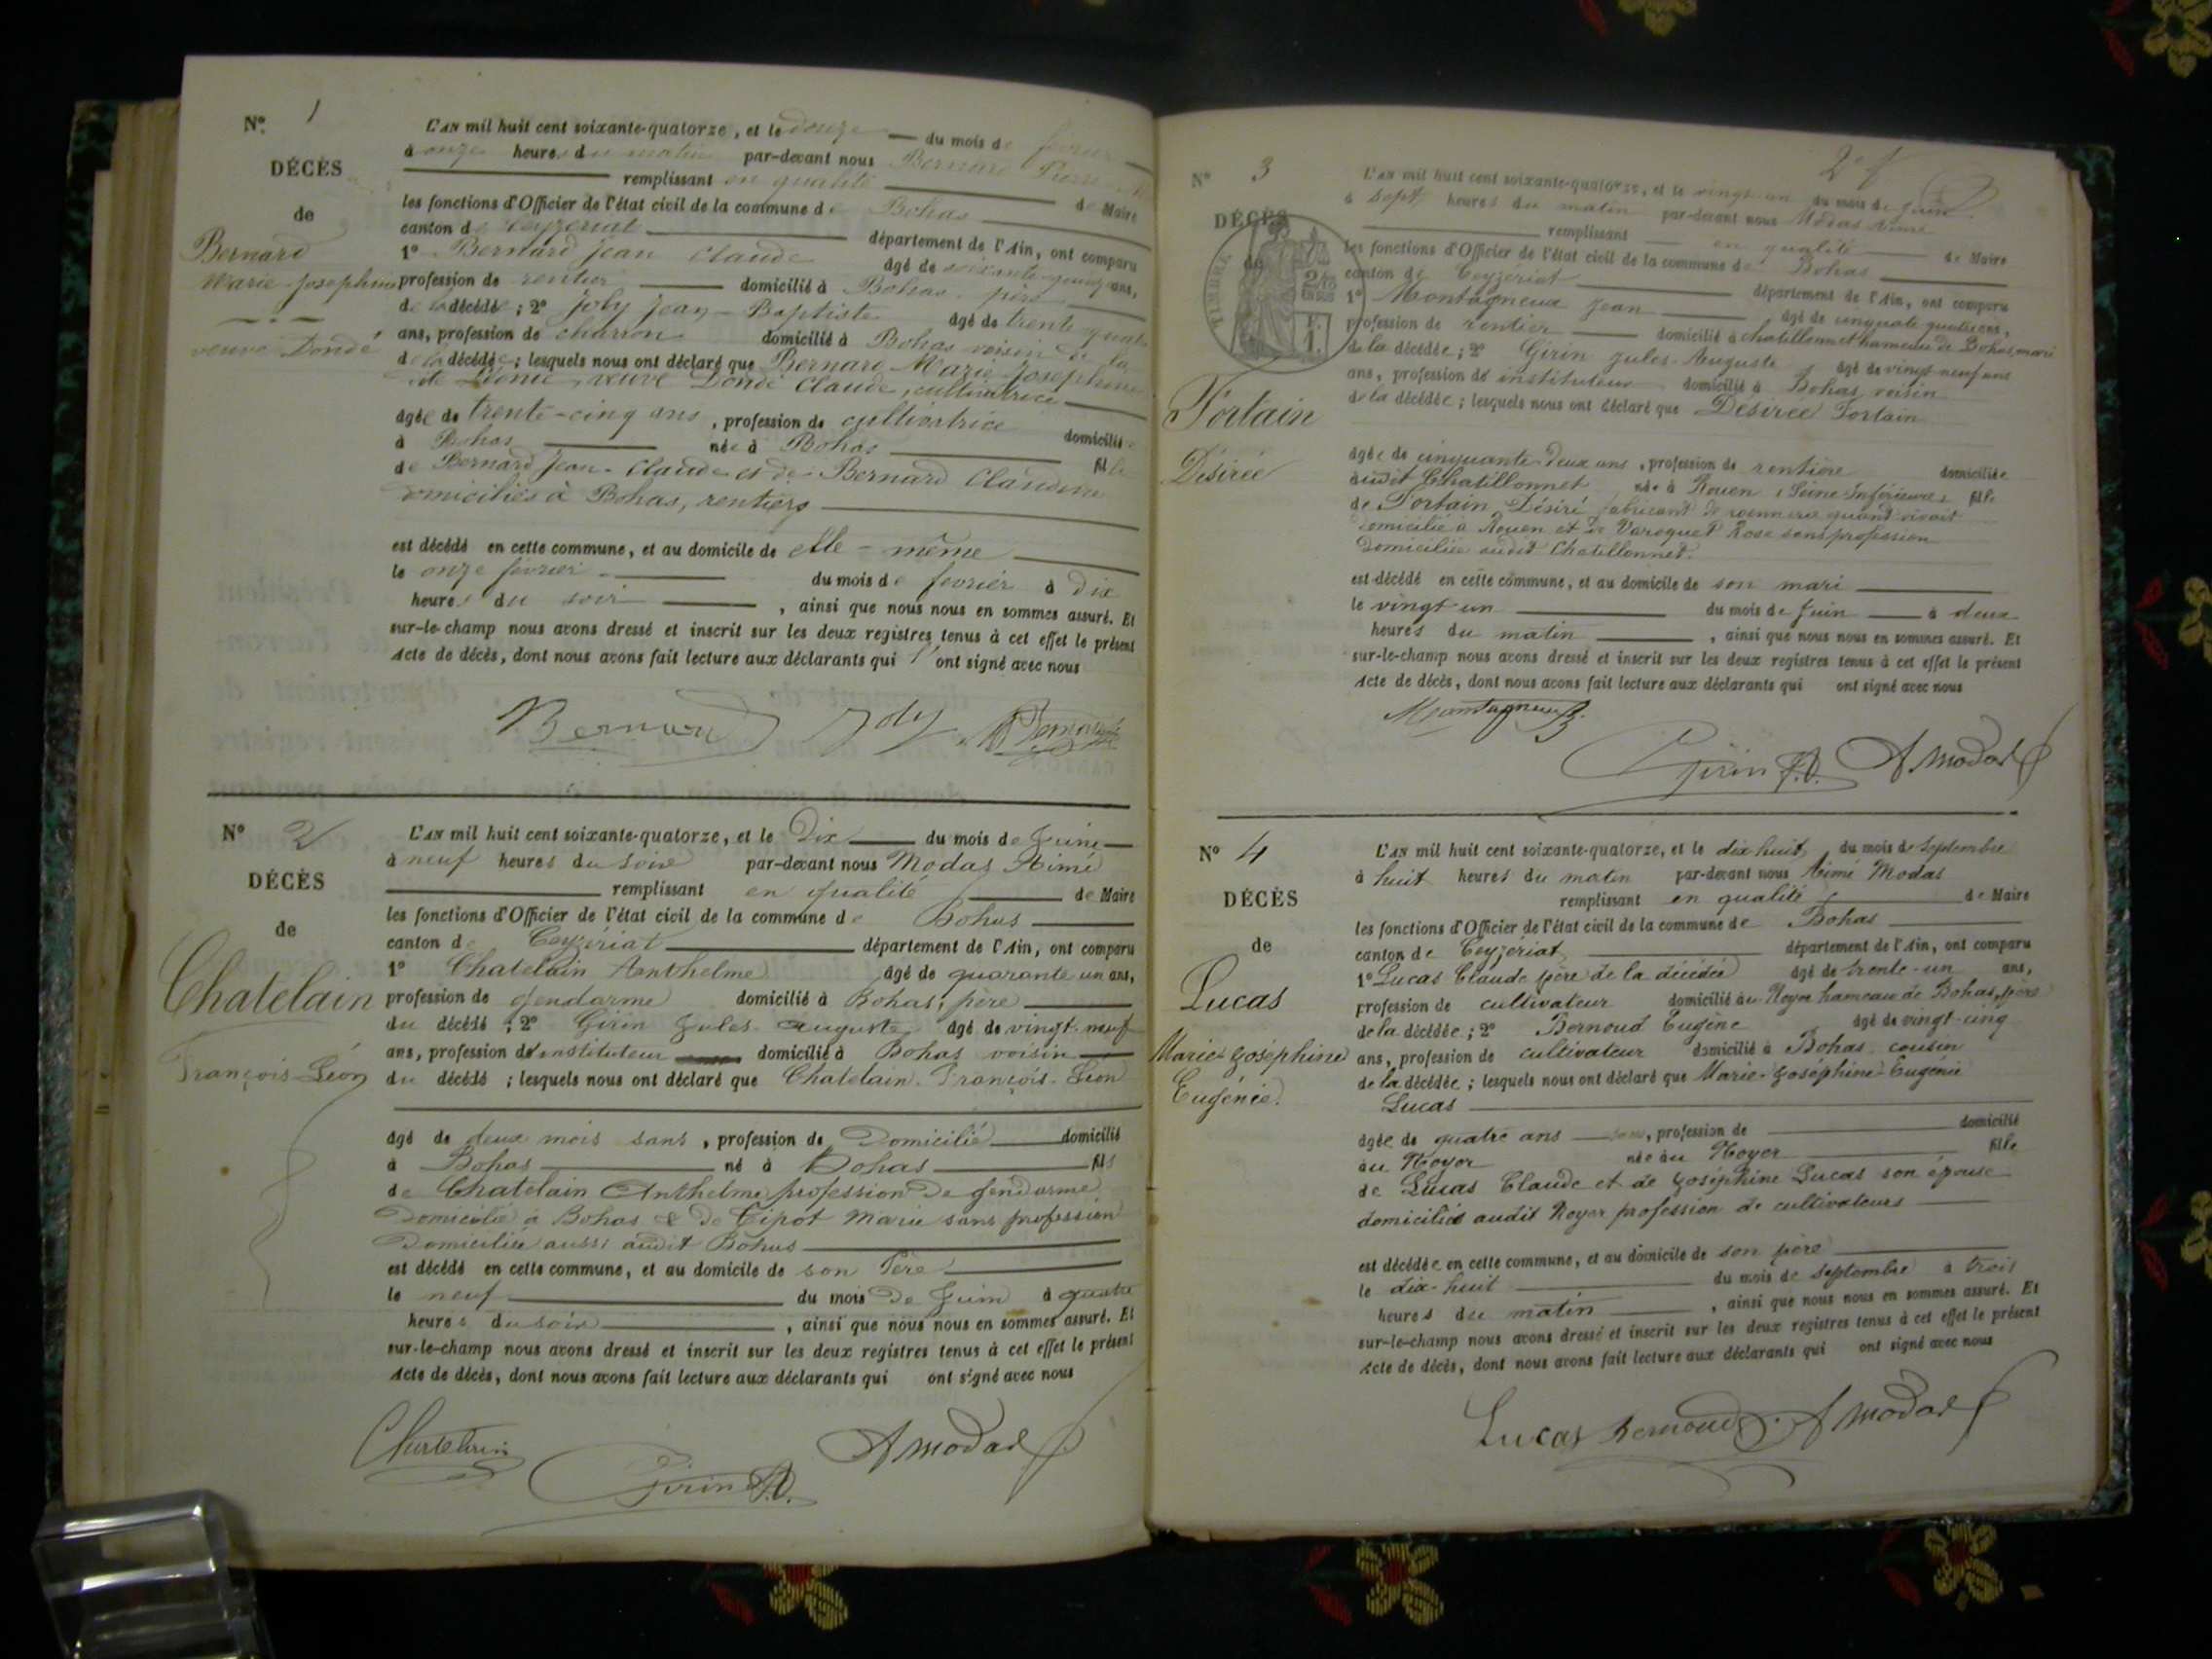 N° 1
DÉCÈS
de
Bernard
Marie Josephine
veuve Dondé
L'AN mil huit cent soixante-quatorze, et le douze du mois de février
à onze heures du matin par-devant nous Bernard Pierre
remplissant en qualité de Maire
les fonctions d'Officier de l'état civil de la commune de Bohas
canton de Ceyzériat département de l'Ain, ont comparu
1° Bernard Jean Claude âgé de soixante quinze ans,
profession de rentier domicilié à Bohas, père
de la décédé ; 2° Joly Jean-Baptiste âgé de trente quatre
ans, profession de charron domicilié à Bohas voisin de la
de la décédée ; lesquels nous ont déclaré que Bernard Marie Josephine
veuve Dondé Claude, cultivatrice
âgée de trente-cinq ans, profession de cultivatrice domiciliée
à Bohas née à Bohas fille
de Bernard Jean-Claude et de Bernard Claudine
domiciliés à Bohas, rentiers
est décédé en cette commune, et au domicile de elle-même
le onze février du mois de février à dix
heures du soir, ainsi que nous nous en sommes assuré. Et
sur-le-champ nous avons dressé et inscrit sur les deux registres tenus à cet effet le présent
Acte de décès, dont nous avons fait lecture aux déclarants qui l'ont signé avec nous
Bernard Joly Bernard
N° 2
DÉCÈS
de
Chatelain
François-Léon
L'AN mil huit cent soixante-quatorze, et le Dix du mois de Juin
à neuf heures du soir par-devant nous Modas Aimé
remplissant en qualité de Maire
les fonctions d'Officier de l'état civil de la commune de Bohas
canton de Ceyzériat département de l'Ain, ont comparu
1° Chatelain Anthelme âgé de quarante un ans,
profession de gendarme domicilié à Bohas, père
du décédé ; 2° Girin Jules-Auguste âgé de vingt-neuf
ans, profession d'instituteur domicilié à Bohas voisin
du décédé ; lesquels nous ont déclaré que Chatelain François-Léon
âgé de deux mois sans, profession de Domicilié domicilié
à Bohas né à Bohas fils
de Chatelain Anthelme profession de gendarme
Domicilié à Bohas & de Tipot Marie sans profession
Domiciliée aussi audit Bohas
est décédé en cette commune, et au domicile de son Père
le neuf du mois de Juin à quatre
heures du soir, ainsi que nous nous en sommes assuré. Et
sur-le-champ nous avons dressé et inscrit sur les deux registres tenus à cet effet le présent
Acte de décès, dont nous avons fait lecture aux déclarants qui ont signé avec nous
Chatelain Girin J.A. A Modas
2e f
N° 3
DÉCÈS
de
Fortain
Désirée
TIMBRE
L'AN mil huit cent soixante-quatorze, et le vingt un du mois de juin
à sept heures du matin par-devant nous Modas Aimé
remplissant en qualité de Maire
les fonctions d'Officier de l'état civil de la commune de Bohas
canton de Ceyzériat département de l'Ain, ont comparu
1° Montagneux Jean âgé de cinquante quatre ans,
profession de rentier domicilié à Chatillonnet hameau de Bohas, mari
de la décédée ; 2° Girin Jules-Auguste âgé de vingt-neuf ans
ans, profession de instituteur domicilié à Bohas voisin
de la décédée ; lesquels nous ont déclaré que Désirée Fortain
âgée de cinquante-deux ans, profession de rentière domiciliée
audit Chatillonnet née à Rouen (Seine-Inférieure) fille
de Fortain Désiré fabricant de rouennerie quand vivait
domicilié à Rouen et de Varoquet Rose sans profession
domiciliée audit Chatillonnet.
est décédé en cette commune, et au domicile de son mari
le vingt-un du mois de Juin à deux
heures du matin, ainsi que nous nous en sommes assuré. Et
sur-le-champ nous avons dressé et inscrit sur les deux registres tenus à cet effet le présent
Acte de décès, dont nous avons fait lecture aux déclarants qui ont signé avec nous
Montagneux Girin J.A. A Modas
N° 4
DÉCÈS
de
Lucas
Marie-Joséphine
Eugénie.
L'AN mil huit cent soixante-quatorze, et le dix huit du mois de Septembre
à huit heures du matin par-devant nous Aimé Modas
remplissant en qualité de Maire
les fonctions d'Officier de l'état civil de la commune de Bohas
canton de Ceyzériat département de l'Ain, ont comparu
1° Lucas Claude père de la décédée âgé de trente-un ans,
profession de cultivateur domicilié au Noyer hameau de Bohas, père
de la décédée ; 2° Bernoud Eugène âgé de vingt-cinq
ans, profession de cultivateur domicilié à Bohas cousin
de la décédée ; lesquels nous ont déclaré que Marie-Joséphine-Eugénie
Lucas
âgée de quatre ans, profession de domicilié
au Noyer née au Noyer fille
de Lucas Claude et de Joséphine Lucas son épouse
domiciliés audit Noyer profession de cultivateurs
est décédée en cette commune, et au domicile de son père
le dix-huit du mois de Septembre à trois
heures du matin, ainsi que nous nous en sommes assuré. Et
sur-le-champ nous avons dressé et inscrit sur les deux registres tenus à cet effet le présent
Acte de décès, dont nous avons fait lecture aux déclarants qui ont signé avec nous
Lucas Bernoud A Modas